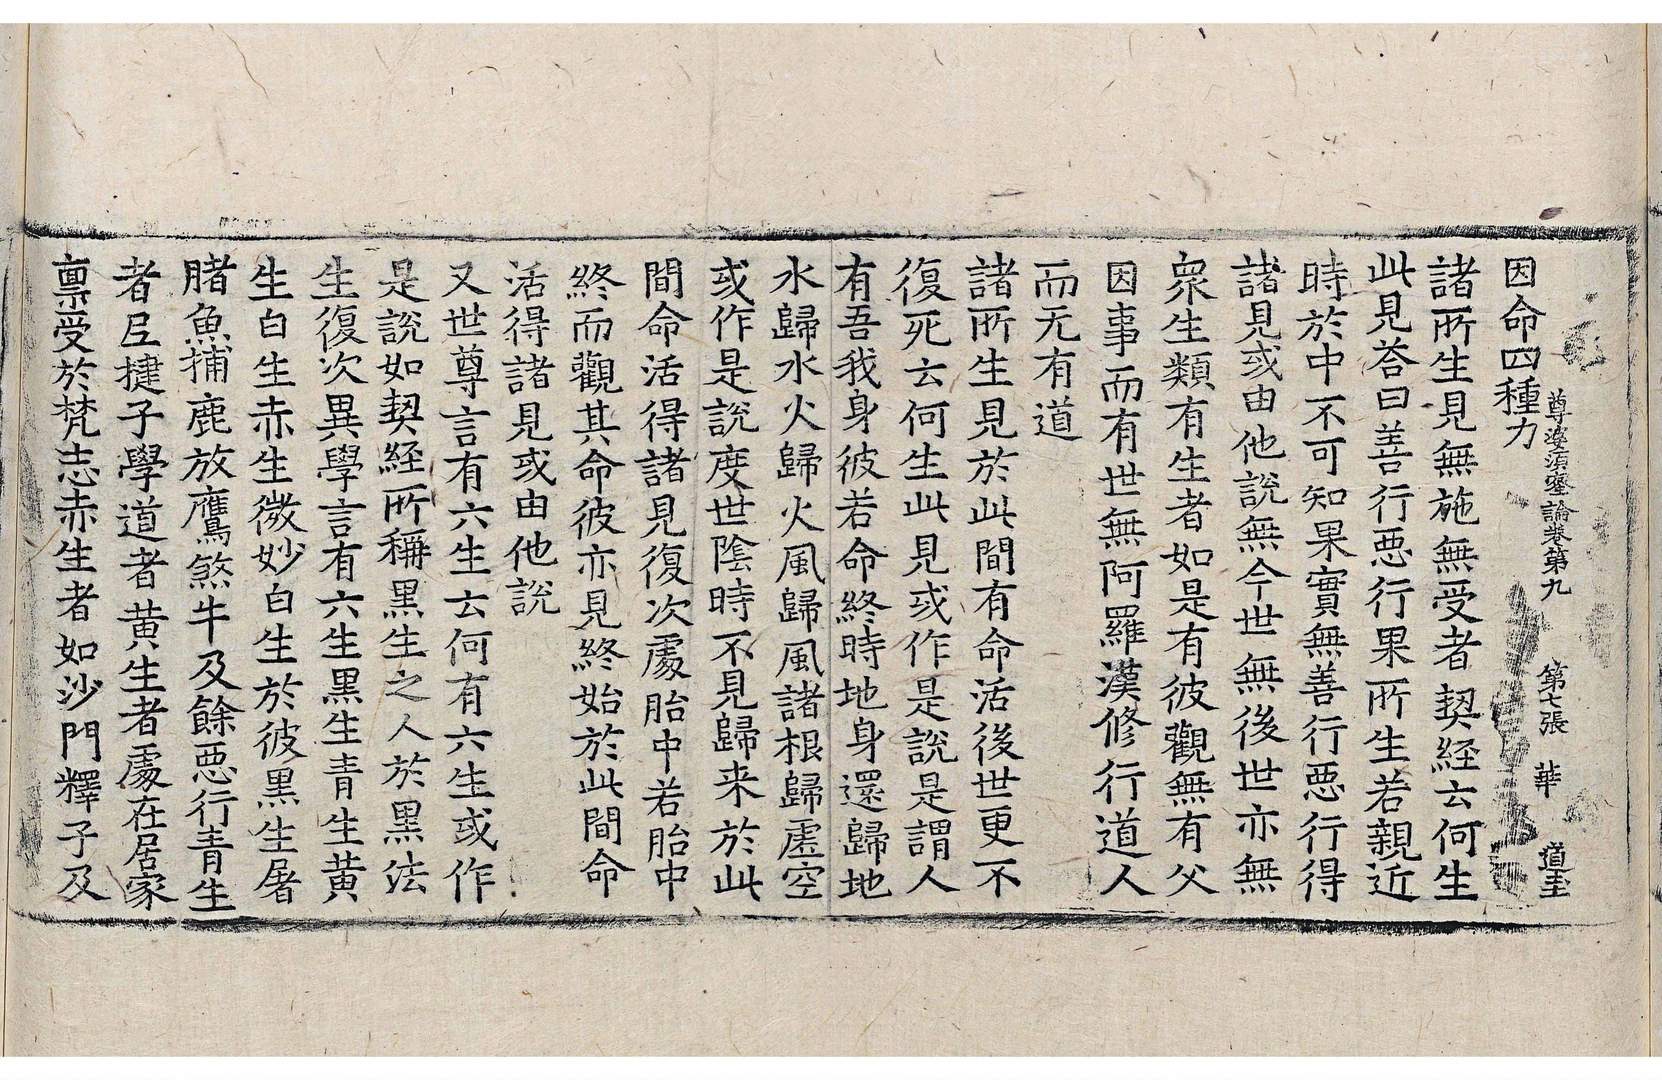 尊婆湏蜜論卷第九 第七張 華 道玉
因命四種力
諸所生見無施無受者契経云何生
此見荅曰善行惡行果所生若親近
時於中不可知果實無善行惡行得
諸見或由他說無今世無後世亦無
衆生類有生者如是有彼觀無有父
因事而有世無阿羅漢修行道人
而无有道
諸所生見於此間有命活後世更不
復死云何生此見或作是說是謂人
有吾我身彼若命終時地身還歸地
水歸水火歸火風歸風諸根歸虛空
或作是說度世陰時不見歸来於此
間命活得諸見復次處胎中若胎中
終而觀其命彼亦見終始於此間命
活得諸見或由他說
又世尊言有六生云何有六生或作
是說如契経所稱黒生之人於黒法
生復次異學言有六生黒生青生黄
生白生赤生微妙白生於彼黒生屠
䐗魚捕鹿放鷹煞牛及餘惡行青生
者尼揵子學道者黄生者處在居家
禀受於梵志赤生者如沙門釋子及